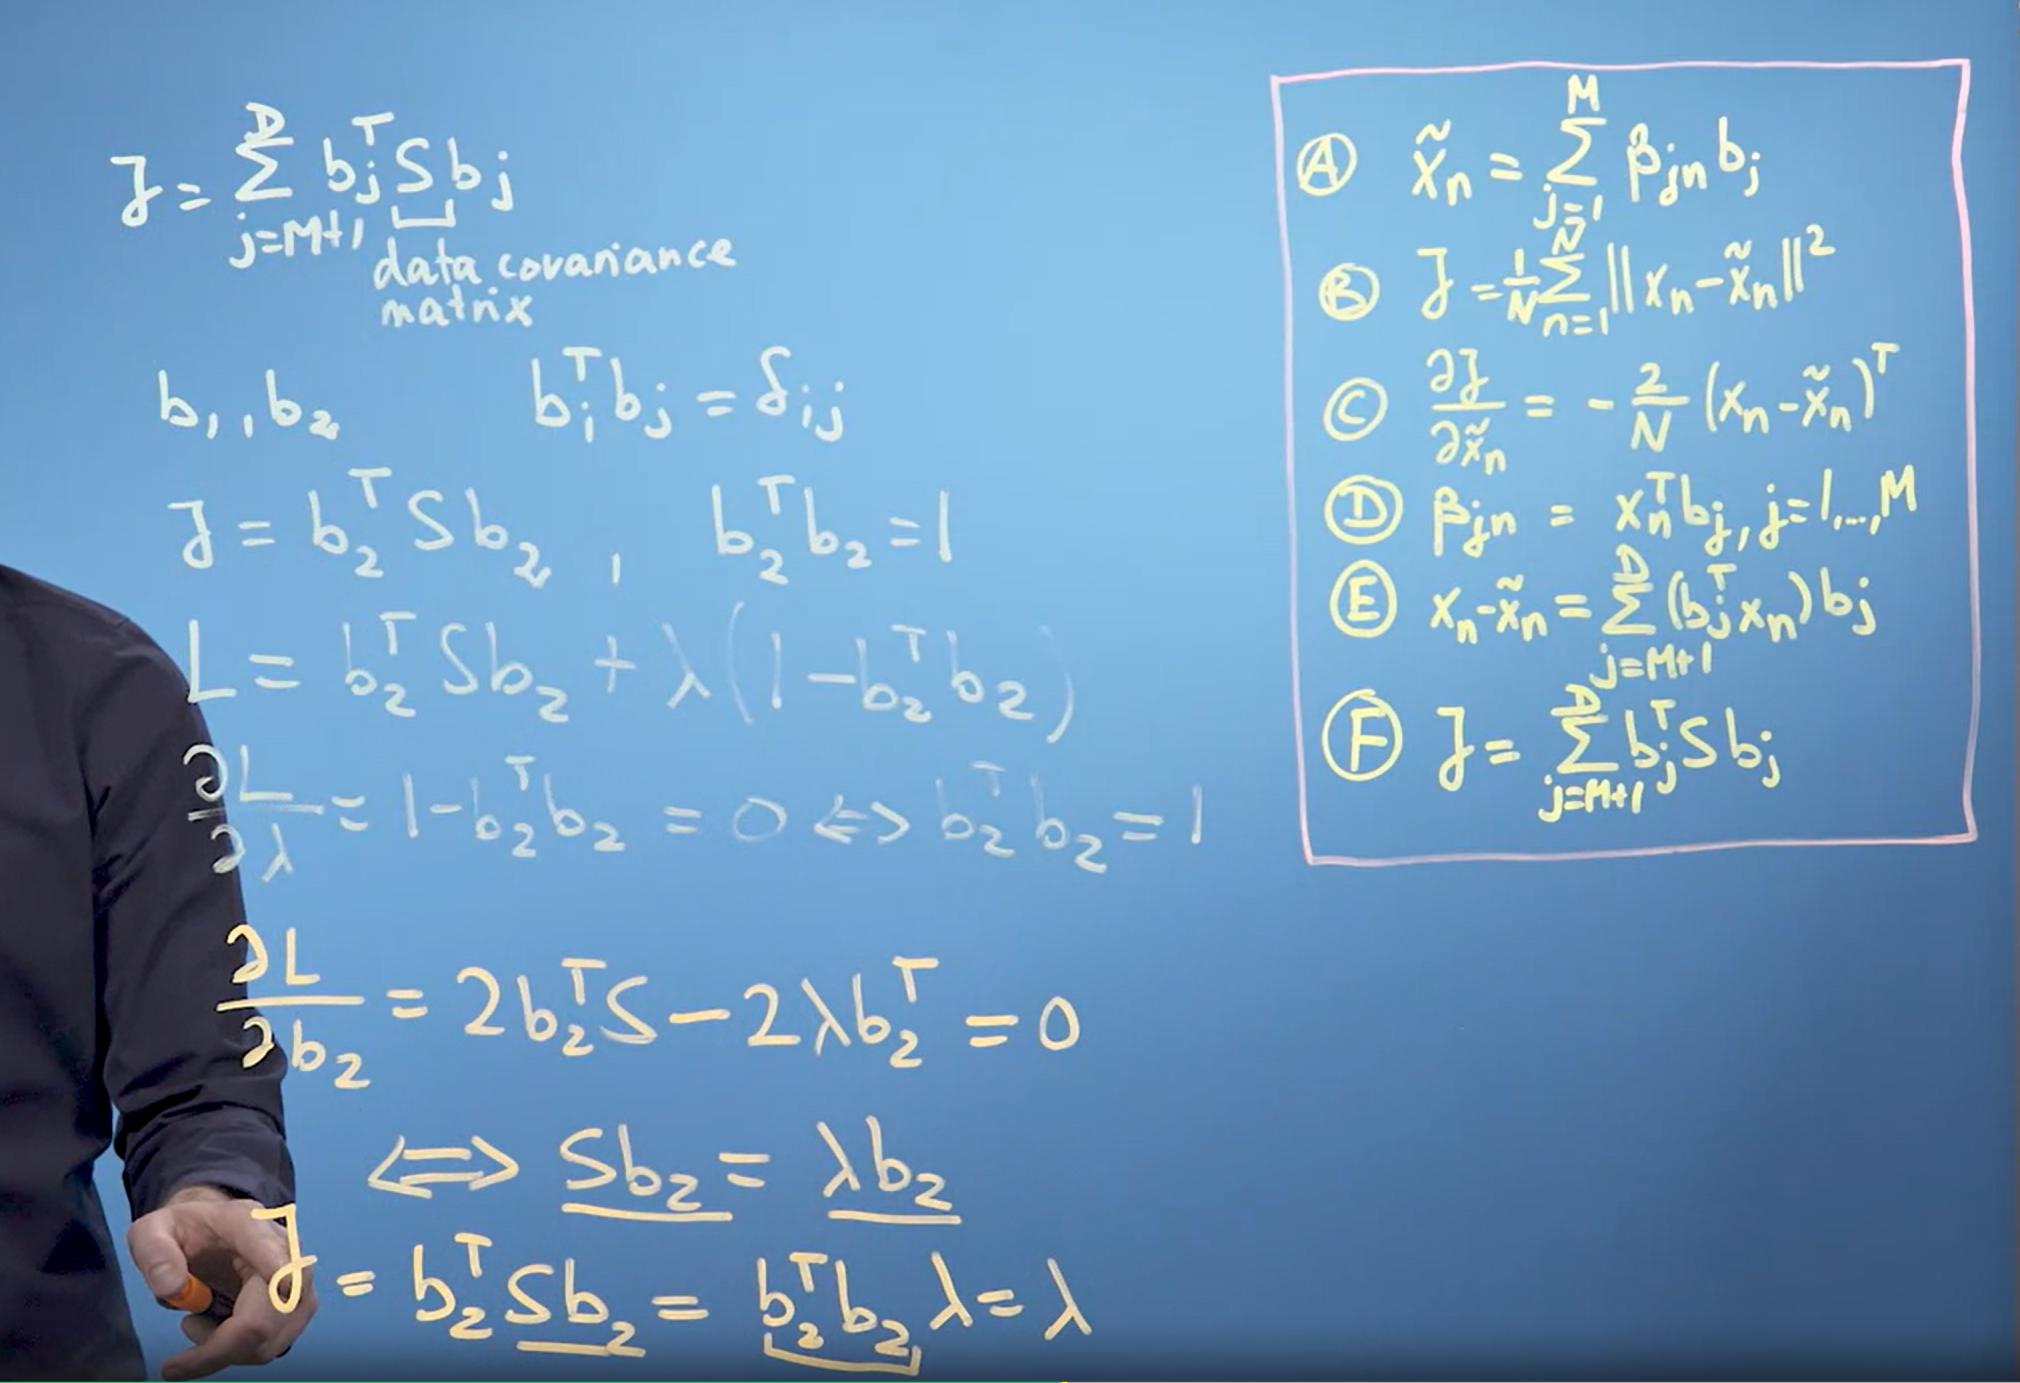 J = ∑_{j=M+1}^{D} b_j^T S b_j
data covariance
matrix
b_1, b_2    b_i^T b_j = δ_{ij}
J = b_2^T S b_2 ,  b_2^T b_2 = 1
L = b_2^T S b_2 + λ(1 - b_2^T b_2)
∂L/∂λ = 1 - b_2^T b_2 = 0 ⇔ b_2^T b_2 = 1
∂L/∂b_2 = 2b_2^T S - 2λb_2^T = 0
⇔ Sb_2 = λb_2
J = b_2^T S b_2 = b_2^T b_2 λ = λ
Ⓐ x̃_n = ∑_{j=1}^{M} β_{jn} b_j
Ⓑ J = 1/N ∑_{n=1}^{N} ||x_n - x̃_n||^2
Ⓒ ∂J/∂x̃_n = - 2/N (x_n - x̃_n)^T
Ⓓ β_{jn} = x_n^T b_j, j=1,...,M
Ⓔ x_n - x̃_n = ∑_{j=M+1}^{D} (b_j^T x_n) b_j
Ⓕ J = ∑_{j=M+1}^{D} b_j^T S b_j